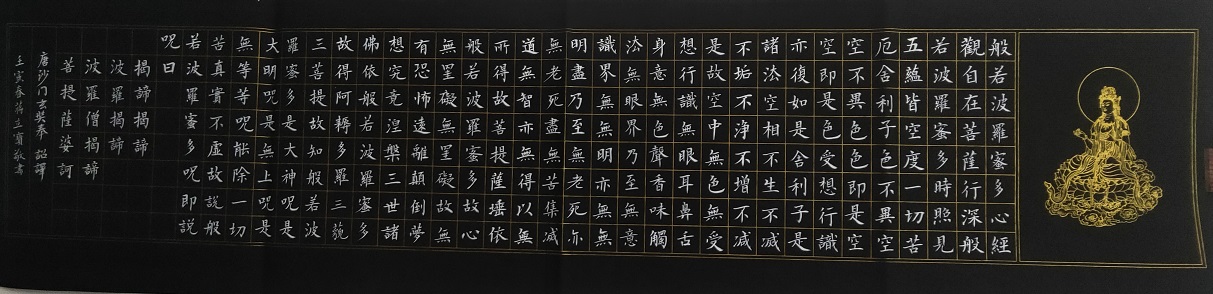 般若波羅蜜多心經
觀自在菩薩行深般
若波羅蜜多時照見
五蘊皆空度一切苦
厄舍利子色不異空
空不異色色即是空
空即是色受想行識
亦復如是舍利子是
諸法空相不生不滅
不垢不淨不增不減
是故空中無色無受
想行識無眼耳鼻舌
身意無色聲香味觸
法無眼界乃至無意
識界無無明亦無無
明盡乃至無老死亦
無老死盡無苦集滅
道無智亦無得以無
所得故菩提薩埵依
般若波羅蜜多故心
無罣礙無罣礙故無
有恐怖遠離顛倒夢
想究竟涅槃三世諸
佛依般若波羅蜜多
故得阿耨多羅三藐
三菩提故知般若波
羅蜜多是大神咒是
大明咒是無上咒是
無等等咒能除一切
苦真實不虛故說般
若波羅蜜多咒即說
咒曰
揭諦揭諦
波羅揭諦
波羅僧揭諦
菩提薩婆訶
唐沙门玄奘奉 詔譯
壬寅春蔣 敬書